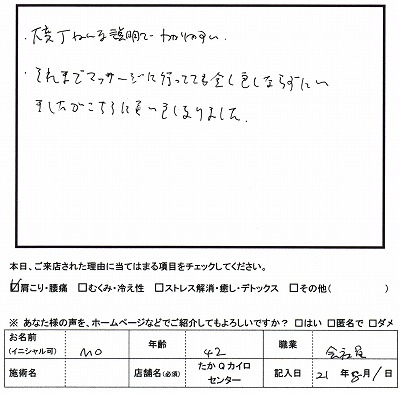 ・大変丁ねいな説明でわかりやすい。
・それまでマッサージに行ってても全く
ましたがこちらに
本日、ご来店された理由に当てはまる項目をチェックしてください。
☑肩こり・腰痛 □むくみ・冷え性 □ストレス解消・癒し・デトックス □その他( )
※ あなた様の声を、ホームページなどでご紹介してもよろしいですか？ □はい □匿名で □ダメ
お名前 (イニシャル可) MO 年齢 42 職業 会社員
施術名 店舗名(必須) たかQカイロセンター 記入日 21年8月1日